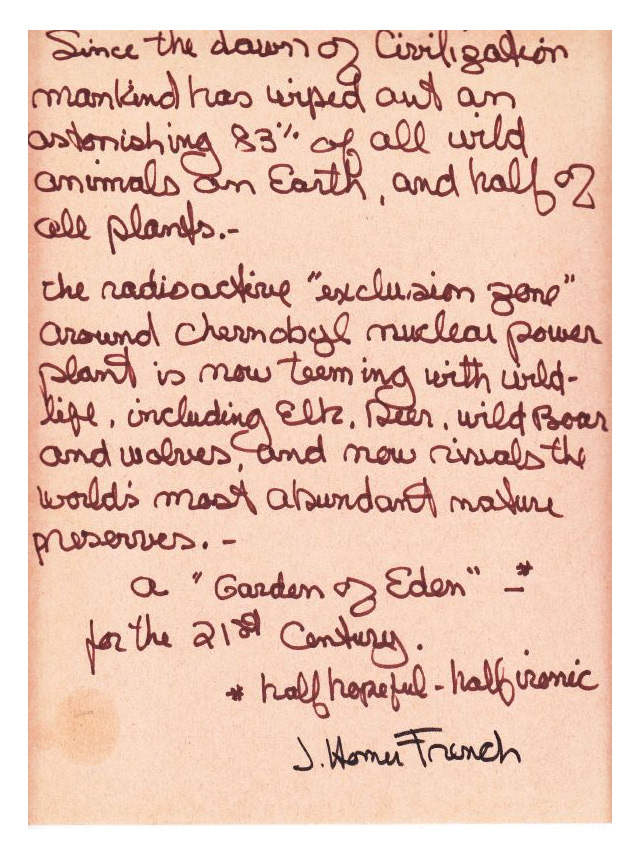 Since the dawn of Civilization
mankind has wiped out an
astonishing 83% of all wild
animals on Earth, and half of
all plants.-
the radioactive "exclusion zone"
around chernobyl nuclear power
plant is now teeming with wild-
life, including Elk, Deer, wild Boar
and wolves, and now rivals the
world's most abundant nature
preserves.-
a "Garden of Eden" -*
for the 21st Century.
* half hopeful - half ironic
J. Homer French